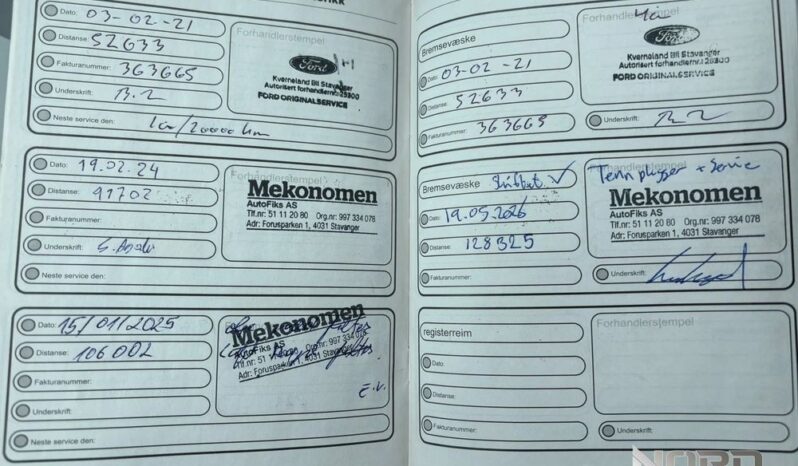 Dato: 03-02-21
Distanse: 52633
Fakturanummer: 363665
Underskrift:
Neste service den: 1år/20000 km
Forhandlerstempel
Ford
Kverneland Bil Stavanger
FORD ORIGINALSERVICE
Dato: 19.02.24
Distanse: 91702
Fakturanummer:
Underskrift:
Neste service den:
Forhandlerstempel
Mekonomen
AutoFiks AS
Tlf.nr: 51 11 20 80 Org.nr: 997 334 078
Adr: Forusparken 1, 4031 Stavanger
Dato: 15/01/2025
Distanse: 106002
Fakturanummer:
Underskrift:
Neste service den:
Mekonomen
AutoFiks AS
Tlf.nr: 51 Org.nr: 997 334
Adr: Forusparken 1, 4031 Stavanger
Bremsevæske
Dato: 03-02-21
Distanse: 52633
Fakturanummer: 363665
Forhandlerstempel
Ford
Kverneland Bil Stavanger
Autorisert forhandlernr:
FORD ORIGINALSERVICE
Underskrift:
Bremsevæske
Dato: 19.05.2026
Distanse: 128325
Fakturanummer:
Forhandlerstempel
Tennplugger + Service
Mekonomen
AutoFiks AS
Tlf.nr: 51 11 20 80 Org.nr: 997 334 078
Adr: Forusparken 1, 4031 Stavanger
Underskrift:
registerreim
Dato:
Distanse:
Fakturanummer:
Forhandlerstempel
Underskrift:
NORD